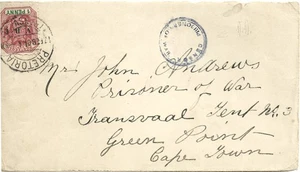 1 PENNY
PRETORIA
Mr John Andrews
Prisoner of War
Transvaal Tent No. 3
Green Point
Cape Town